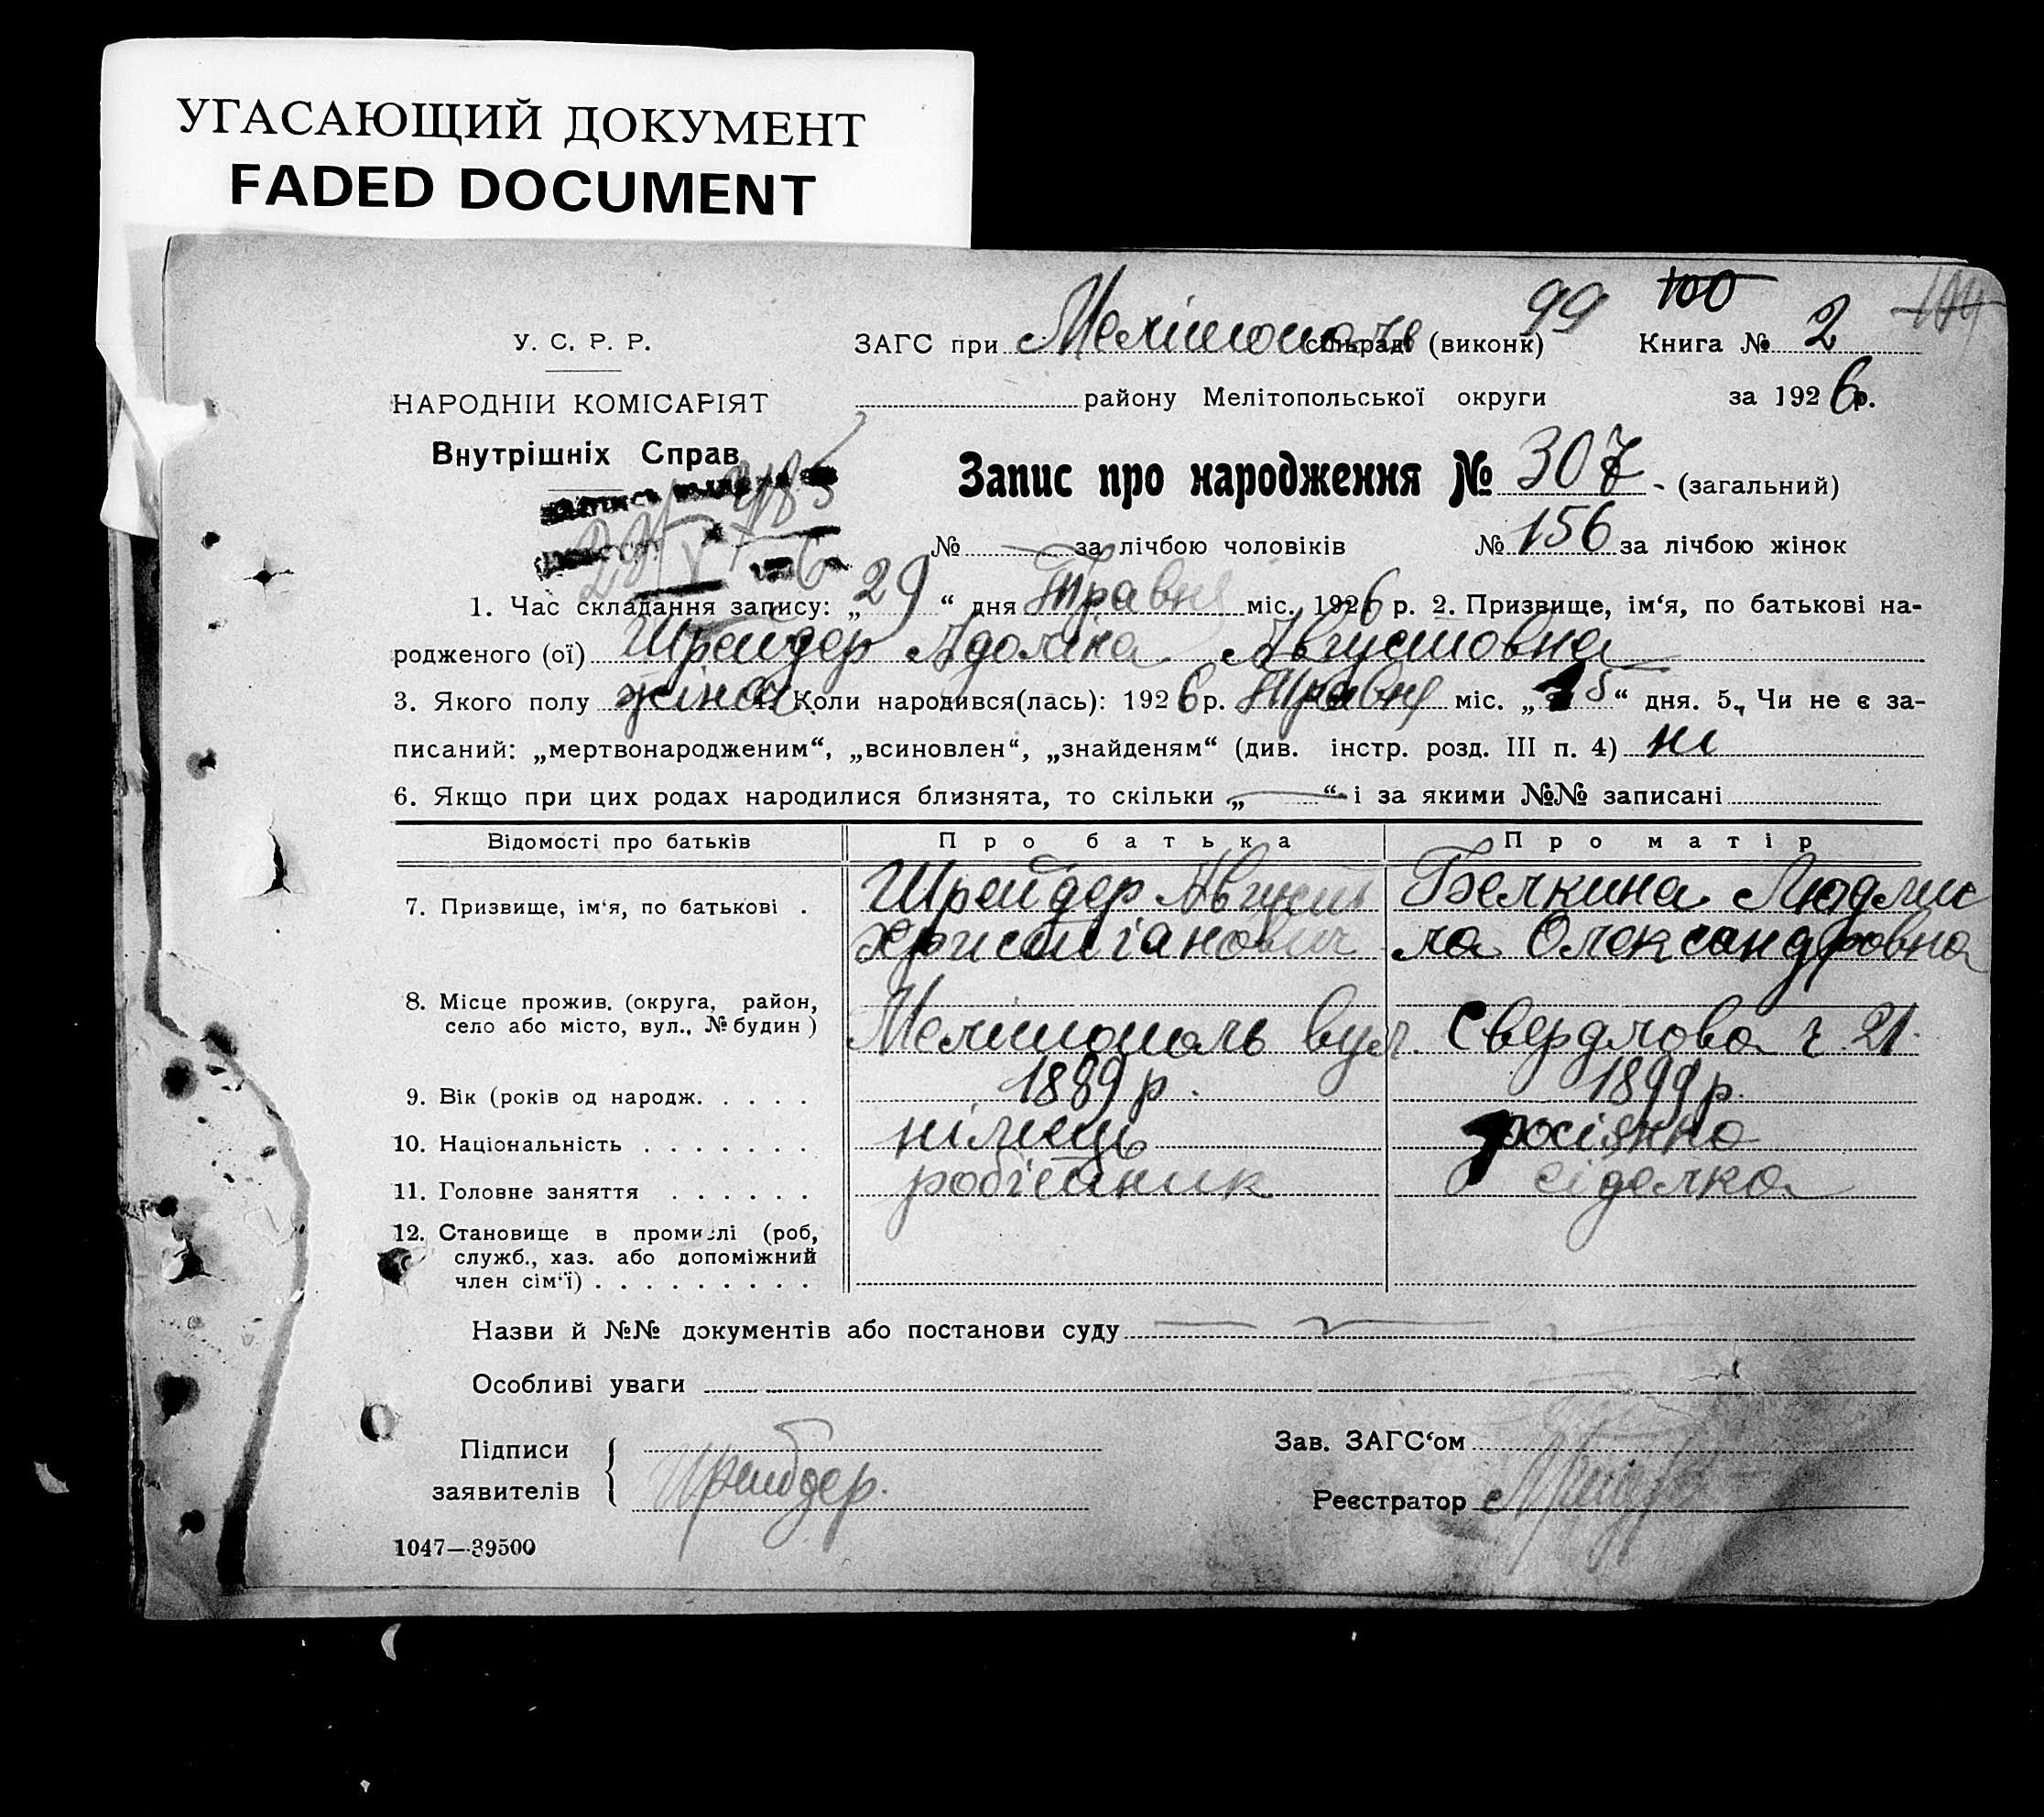 УГАСАЮЩИЙ ДОКУМЕНТ
FADED DOCUMENT
99 100 104
У. С. Р. Р.
ЗАГС при Мелітополь сільраді (виконк) Книга № 2
НАРОДНІЙ КОМІСАРІЯТ
району Мелітопольської округи за 1926 р.
Внутрішніх Справ
Запис про народження № 307 (загальний)
№ — за лічбою чоловіків № 156 за лічбою жінок
1. Час складання запису: „29“ дня Травня міс. 1926 р. 2. Призвище, ім‘я, по батькові на-
родженого (ої) Шрейдер Августовна
3. Якого полу жіноч. 4. Коли народився(лась): 1926 р. Травня міс. „ “ дня. 5. Чи не є за-
писаний: „мертвонародженим“, „всиновлен“, „знайденям“ (див. інстр. розд. III п. 4) ні
6. Якщо при цих родах народилися близнята, то скільки „—“ і за якими №№ записані
Відомості про батьків Про батька Про матір
7. Призвище, ім‘я, по батькові . Шрейдер Август Белкина Людми
Христіанович ла Олександровна
8. Місце прожив. (округа, район,
село або місто, вул., № будин) Мелітополь вул. Свердлова ч. 21.
9. Вік (років од народж. . . . . 1889 р. 1899 р.
10. Національність . . . . . . . німець росіянка
11. Головне заняття . . . . . . робітник сіделка
12. Становище в промислі (роб,
служб., хаз. або допоміжний
член сім‘ї) . . . . . . . . .
Назви й №№ документів або постанови суду
Особливі уваги
Підписи
заявителів
Шрейдер.
Зав. ЗАГС‘ом
Реєстратор
1047—39500